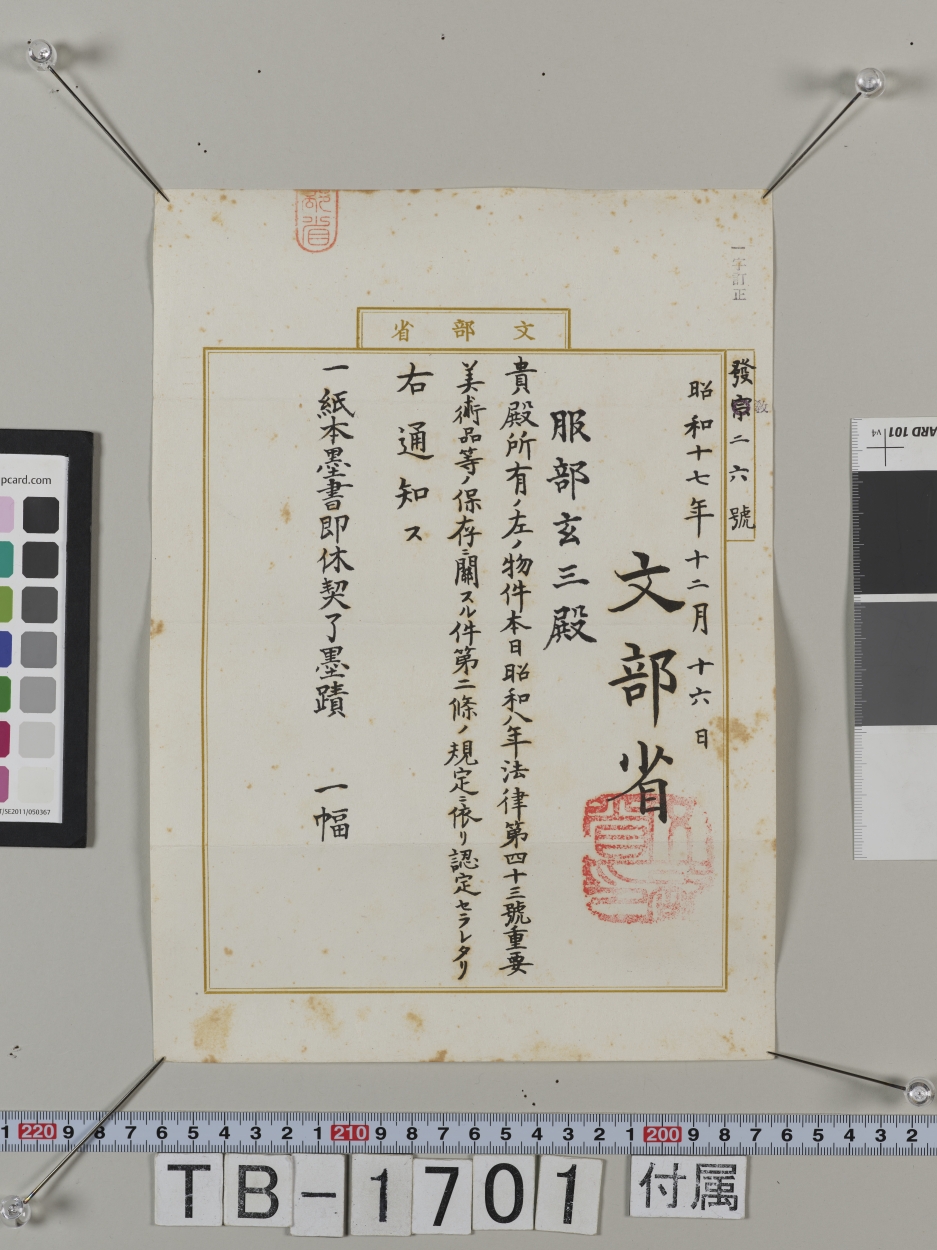 一字訂正
發宗教二六號
昭和十七年十二月十六日
文部省
文部省
服部玄三殿
貴殿所有ノ左ノ物件本日昭和八年法律第四十三號重要
美術品等ノ保存ニ關スル件第二條ノ規定ニ依リ認定セラレタリ
右通知ス
一紙本墨書即休契了墨蹟 一幅
pcard.com
CARD 101
v4
1 220 9 8 7 6 5 4 3 2 1 210 9 8 7 6 5 4 3 2 1 200 9 8 7 6 5 4 3 2
TB-1701 付属